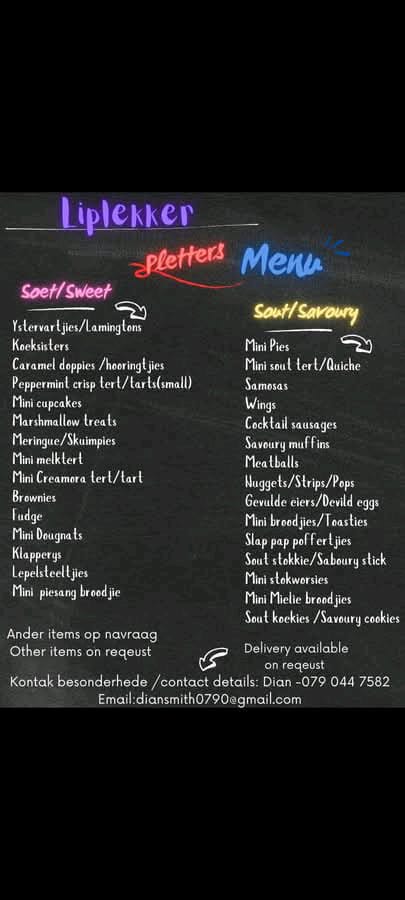 Liplekker
Pletters Menu
Soet/Sweet
Ystervartjies/Lamingtons
Koeksisters
Caramel doppies /hooringtjies
Peppermint crisp tert/tarts(small)
Mini cupcakes
Marshmallow treats
Meringue/Skuimpies
Mini melktert
Mini Creamora tert/tart
Brownies
Fudge
Mini Dougnats
Klapperys
Lepelsteeltjies
Mini piesang broodjie
Sout/Savoury
Mini Pies
Mini sout tert/Quiche
Samosas
Wings
Cocktail sausages
Savoury muffins
Meatballs
Nuggets/Strips/Pops
Gevulde eiers/Devild eggs
Mini broodjies/Toasties
Slap pap poffertjies
Sout stokkie/Saboury stick
Mini stokworsies
Mini Mielie broodjies
Sout koekies /Savoury cookies
Ander items op navraag
Other items on reqeust
Delivery available
on reqeust
Kontak besonderhede /contact details: Dian -079 044 7582
Email:diansmith0790@gmail.com